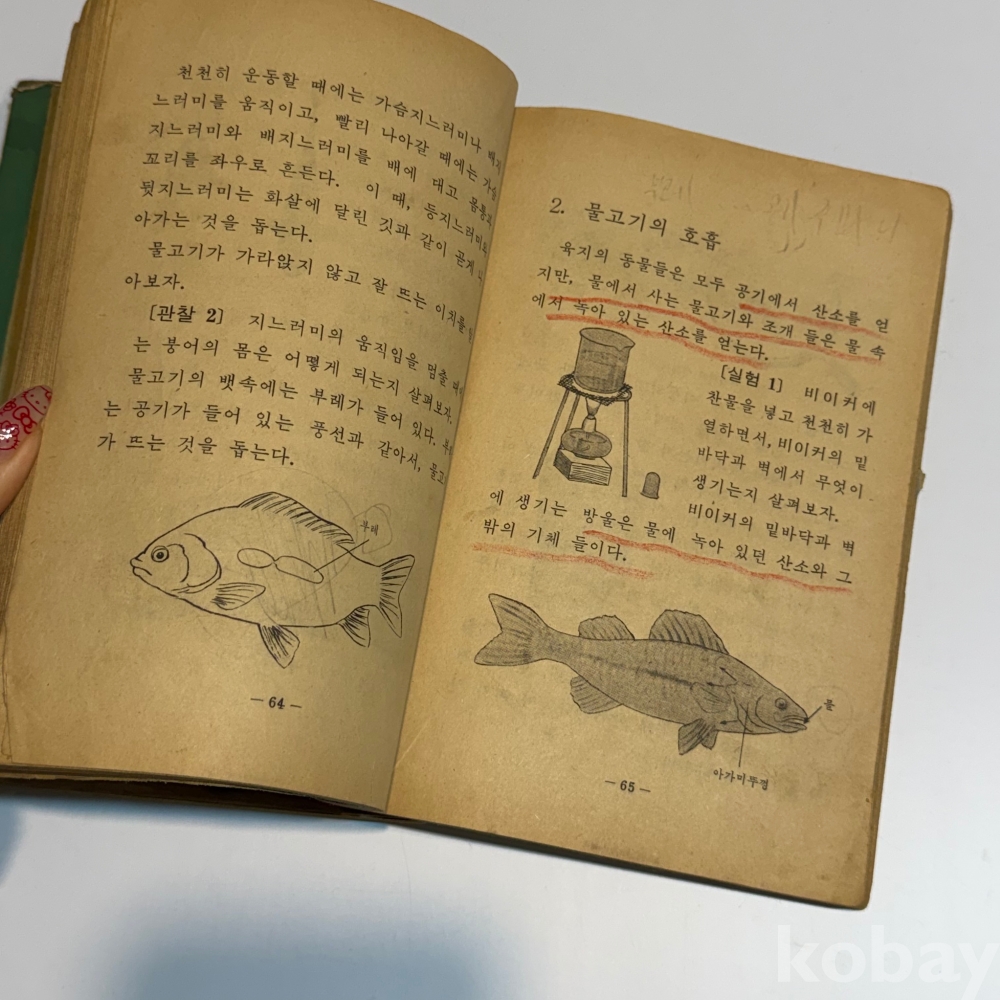 천천히 운동할 때에는 가슴지느러미나 배지
느러미를 움직이고, 빨리 나아갈 때에는 가슴
지느러미와 배지느러미를 배에 대고 몸통과
꼬리를 좌우로 흔든다. 이 때, 등지느러미와
뒷지느러미는 화살에 달린 깃과 같이 곧게
아가는 것을 돕는다.
물고기가 가라앉지 않고 잘 뜨는 이치를
아보자.
[관찰 2] 지느러미의 움직임을 멈출 때에
는 붕어의 몸은 어떻게 되는지 살펴보자.
물고기의 뱃속에는 부레가 들어 있다.
는 공기가 들어 있는 풍선과 같아서, 물고
가 뜨는 것을 돕는다.
부레
— 64 —
2. 물고기의 호흡
육지의 동물들은 모두 공기에서 산소를 얻
지만, 물에서 사는 물고기와 조개 들은 물 속
에서 녹아 있는 산소를 얻는다.
[실험 1] 비이커에
찬물을 넣고 천천히 가
열하면서, 비이커의 밑
바닥과 벽에서 무엇이
생기는지 살펴보자.
비이커의 밑바닥과 벽
에 생기는 방울은 물에 녹아 있던 산소와 그
밖의 기체 들이다.
물
아가미뚜껑
— 65 —
kobay